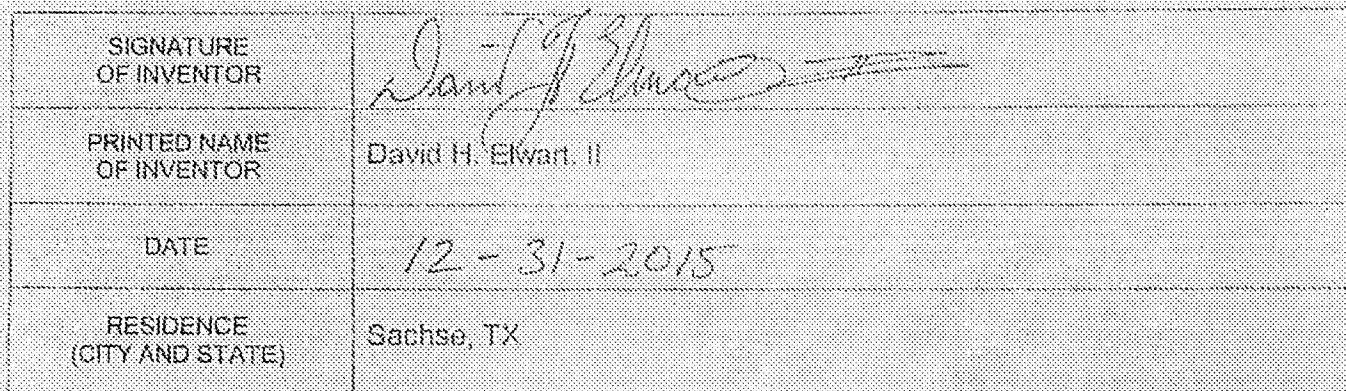 SIGNATURE
OF INVENTOR
PRINTED NAME
OF INVENTOR
David H. Elwart, II
DATE
12-31-2015
RESIDENCE
(CITY AND STATE)
Sachse, TX